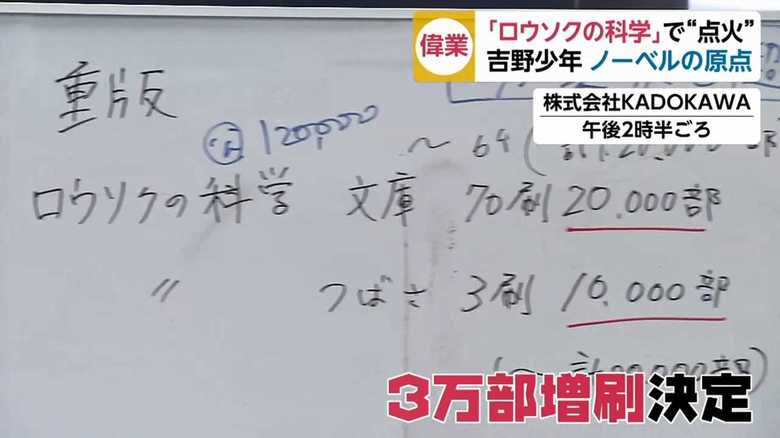 偉業
「ロウソクの科学」で“点火”
吉野少年 ノーベルの原点
株式会社KADOKAWA
午後2時半ごろ
重版
120,000
〜64(計120,000部
ロウソクの科学 文庫 70刷 20,000部
〃 つばさ 3刷 10,000部
3万部増刷決定